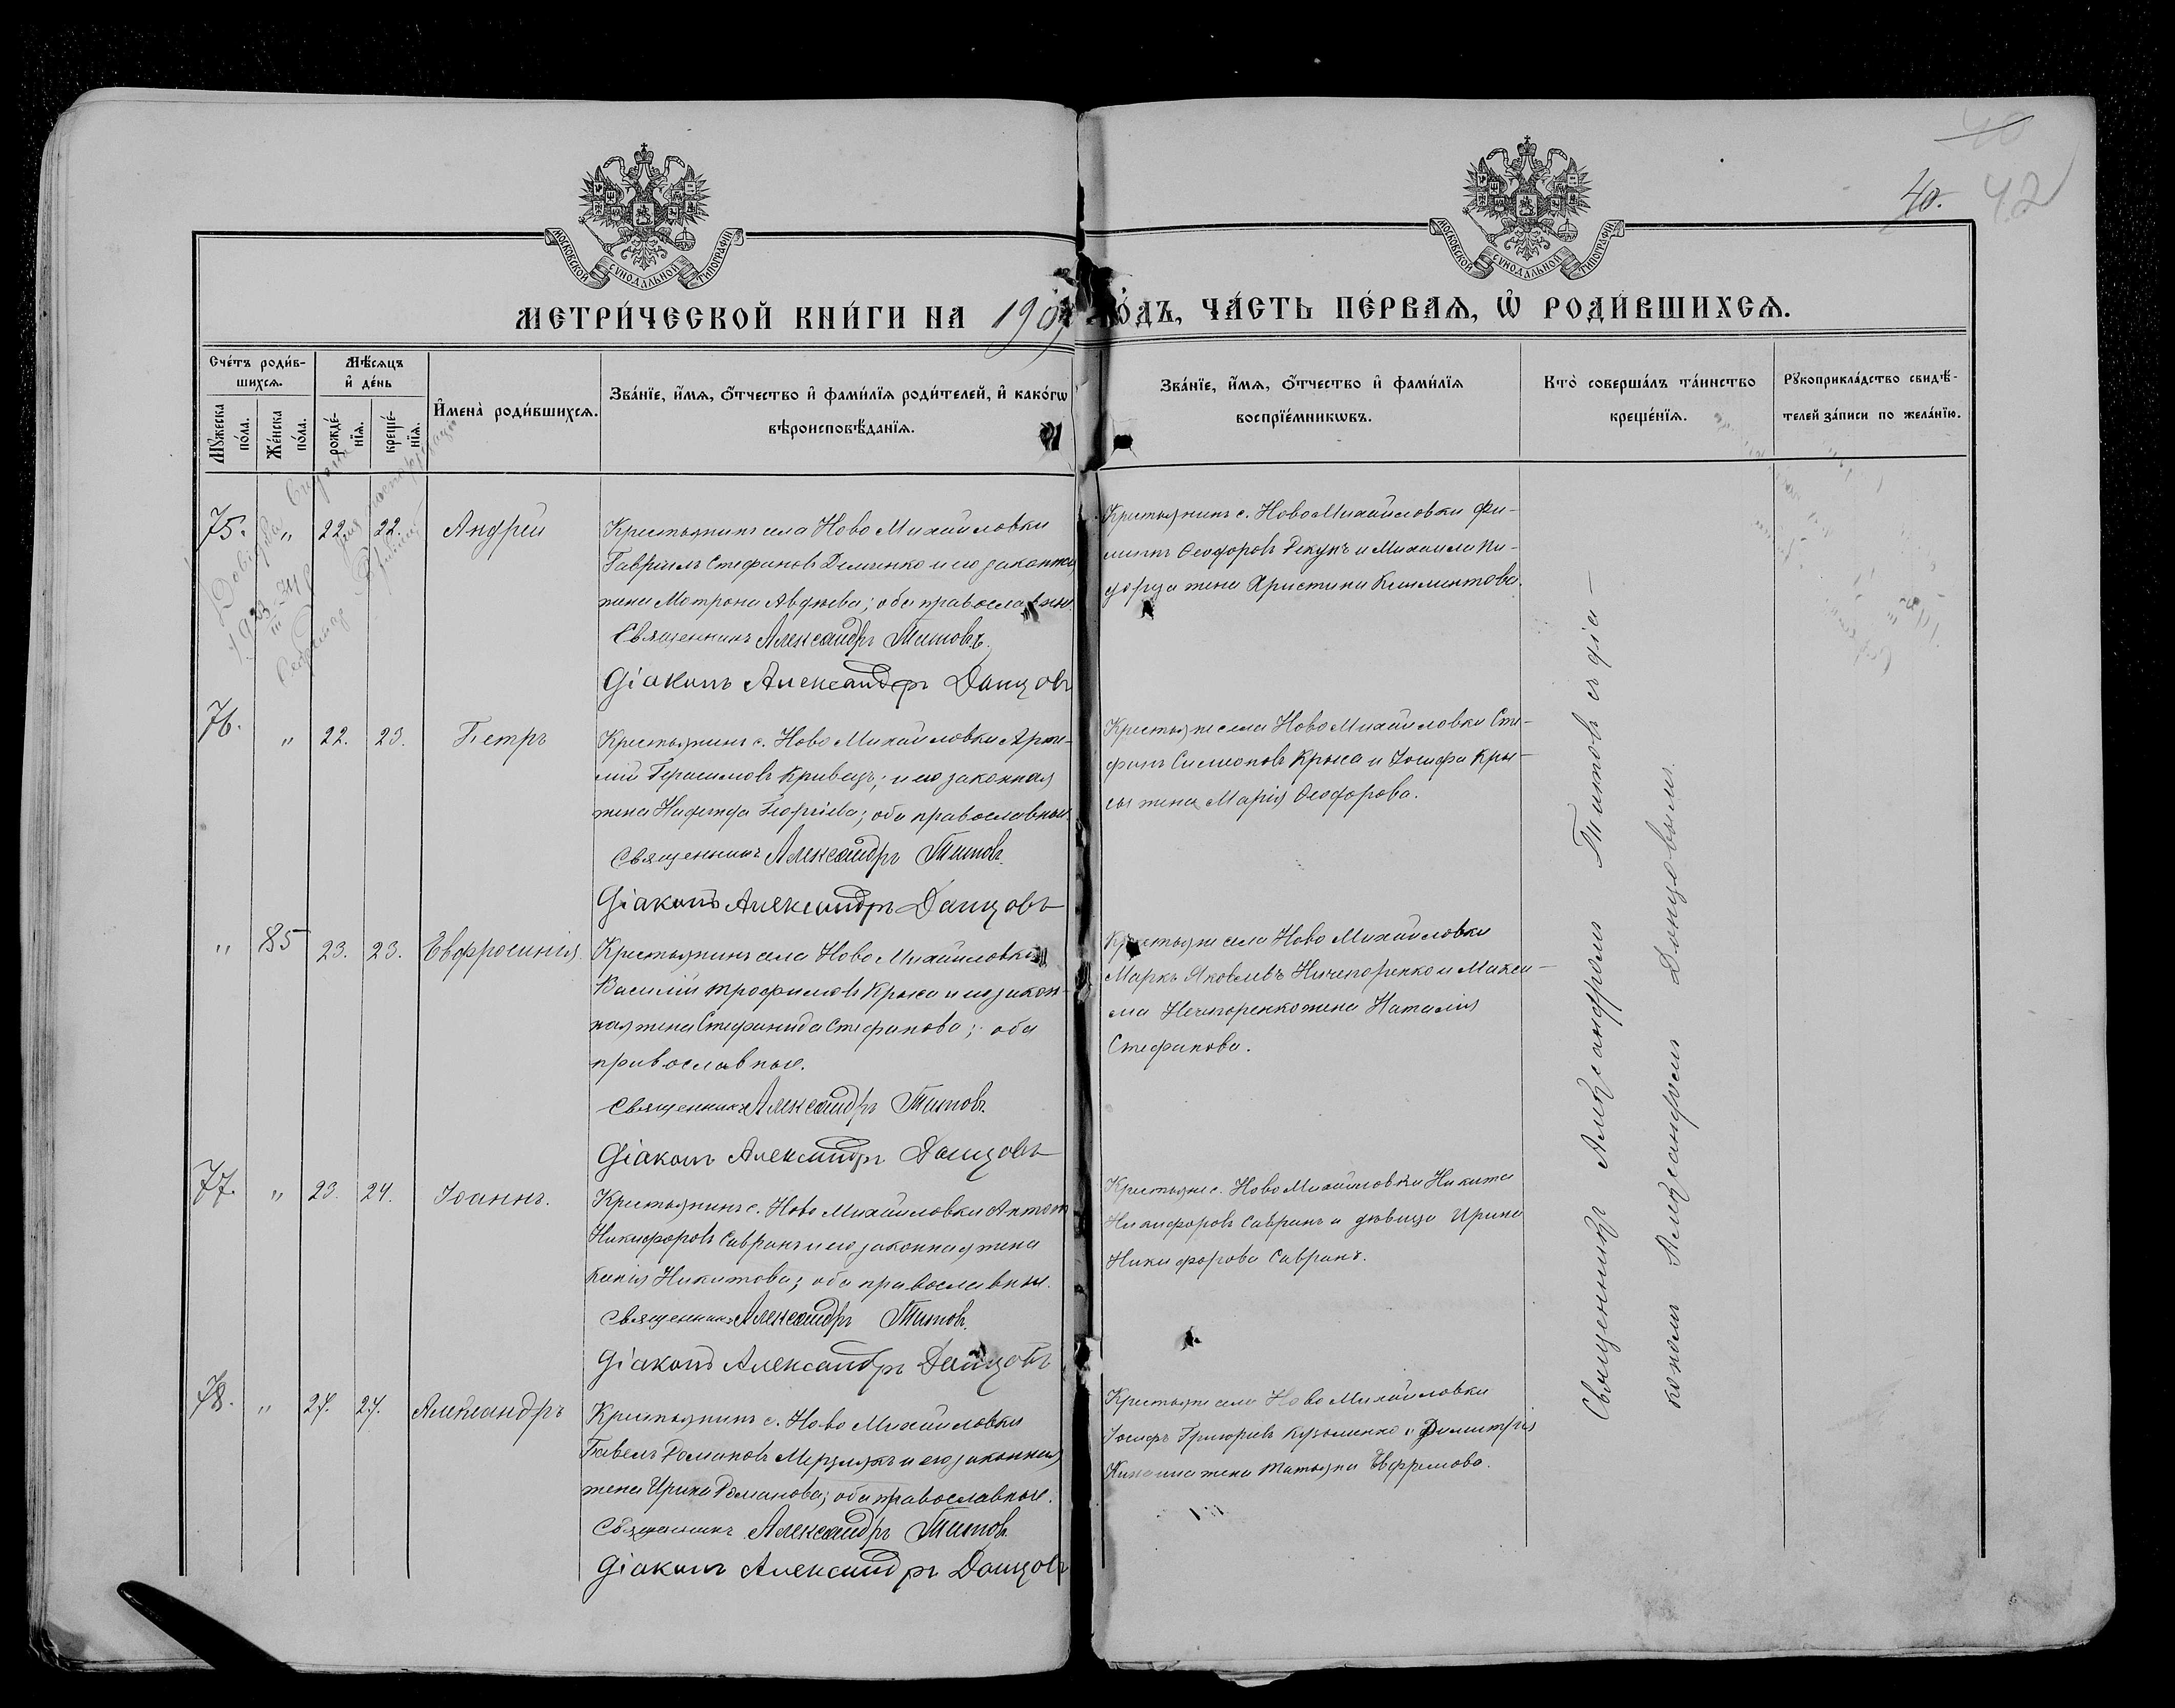 40
40. 42
МОСКОВСКОЙ СѴНОДАЛЬНОЙ ТИПОГРАФІИ
МОСКОВСКОЙ СѴНОДАЛЬНОЙ ТИПОГРАФІИ
МЕТРИ́ЧЕСКОЙ КНИ́ГИ НА 190
ГО́ДЪ, ЧА́СТЬ ПЕ́РВАѦ, Ѡ҆ РОДИ́ВШИХСѦ.
Сче́тъ роди́в-
шихсѧ.
Мꙋ́жеска
по́ла.
Же́нска
по́ла.
Мѣ́сѧцъ
и҆ де́нь
рожде́-
нїѧ.
креще́-
нїѧ.
И҆мена̀ роди́вшихсѧ.
Зва́нїе, и҆́мѧ, ѻ҆́тчество и҆ фами́лїѧ роди́телей, и҆ како́гѡ
вѣроисповѣ́данїѧ.
Зва́нїе, и҆́мѧ, ѻ҆́тчество и҆ фами́лїѧ
воспрїе́мникѡвъ.
Кто̀ соверша́лъ та́инство
креще́нїѧ.
Рꙋкоприкла́дство свидѣ́-
телей за́писи по жела́нїю.
75. " 22. 22. Андрей
Крестьянинъ села Ново Михайловки
Гавріилъ Стефановъ Демченко и его законная
жена Мотрона Авдиева; оба православные
Священникъ Александръ Титовъ.
Діаконъ Александръ Данцовъ
Крестьянинъ с. Ново Михайловки Фи-
липпъ Феодоровъ Рекунъ и Михаила
жена Христина Климентова.
76. " 22. 23. Петръ
Крестьянинъ с. Ново Михайловки Арте-
мій Герасимовъ Кривецъ; и его законная
жена Надежда Георгіева; оба православные
Священникъ Александръ Титовъ.
Діаконъ Александръ Данцовъ
Крестьяне села Ново Михайловки Сте-
фанъ Симеоновъ Крыса и Іосифа Кры-
сы жена Марія Феодорова.
" 85 23. 23. Евфросинія
Крестьянинъ села Ново Михайловки
Василій Трофимовъ Крыса и его закон-
ная жена Стефанида Стефанова; оба
православные.
Священникъ Александръ Титовъ.
Діаконъ Александръ Данцовъ
Крестьяне села Ново Михайловки
Маркъ Яковлевъ Ничепоренко и Макси-
ма Нечепоренко жена Наталія
Стефанова.
77. " 23. 24. Іоаннъ.
Крестьянинъ с. Ново Михайловки Антонъ
Никифоровъ Савранъ и его законная жена
Ксенія Никитова; оба православные.
Священникъ Александръ Титовъ.
Діаконъ Александръ Данцовъ
Крестьяне с. Ново Михайловки Никита
Никифоровъ Савранъ и дѣвица Ирина
Никифорова Савранъ.
78. " 27. 27. Александръ
Крестьянинъ с. Ново Михайловки
Павелъ Романовъ Мерзлякъ и его законная
жена Ирина Романова; оба православные.
Священникъ Александръ Титовъ.
Діаконъ Александръ Данцовъ
Крестьяне села Ново Михайловки
Іосифъ Григорьевъ Кузьменко и Димитрія
жена Татьяна Евфремова.
Священникъ Александромъ Титовъ съ діа-
кономъ Александромъ Донцовымъ.